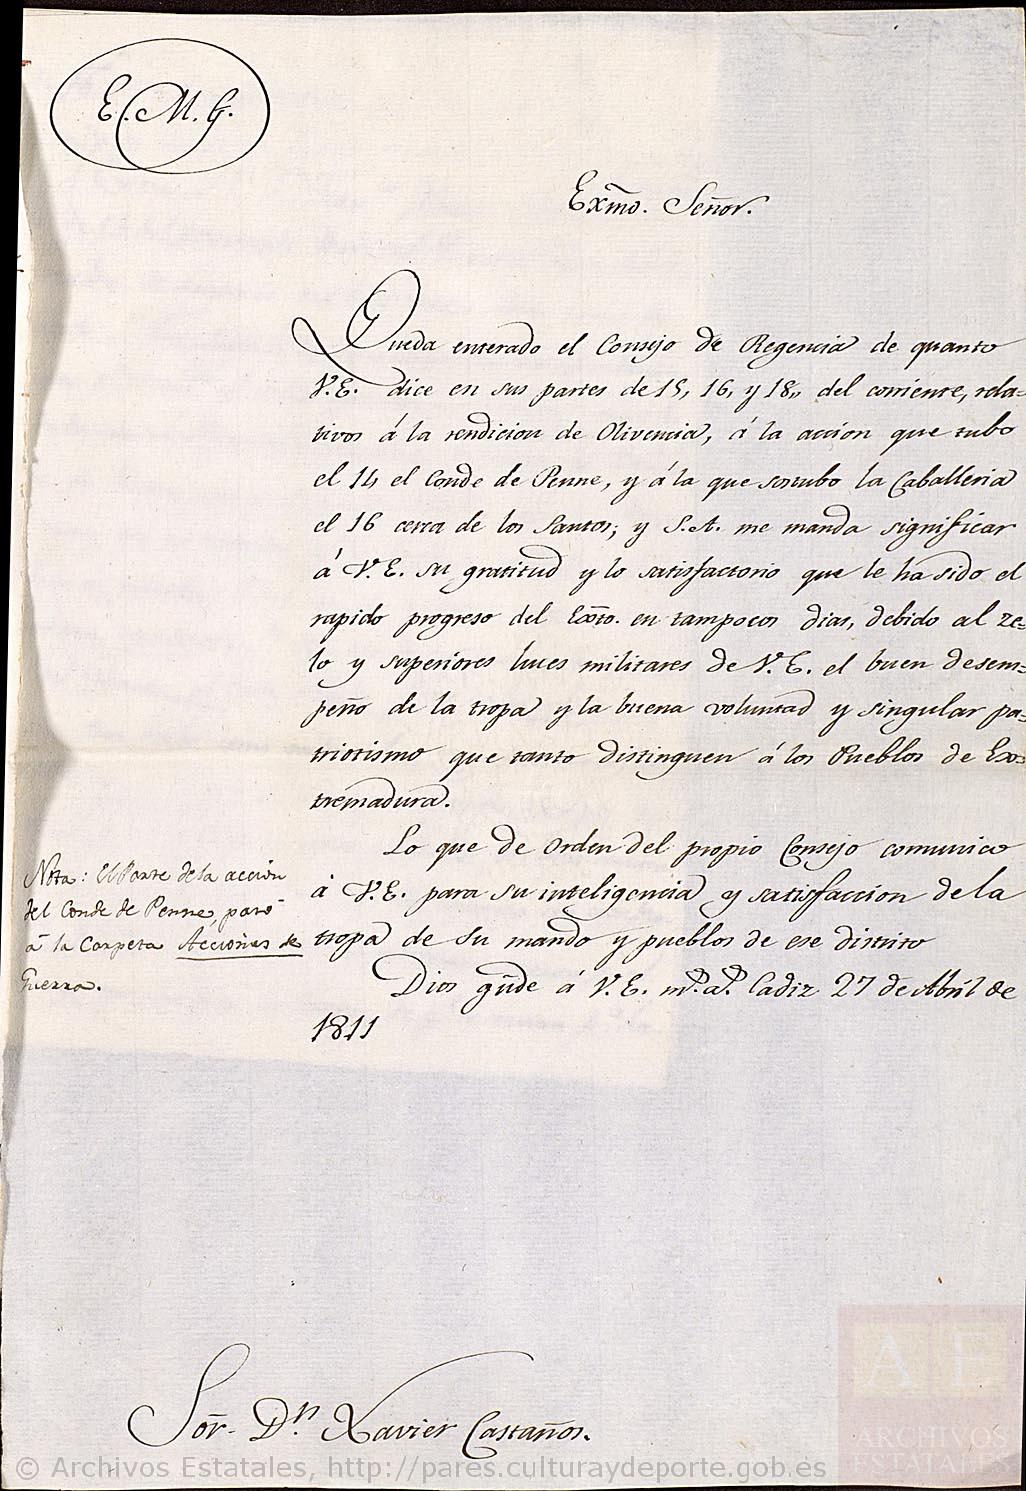 E. M. G.
Exm̃o. Señor.
Queda enterado el Consejo de Regencia de quanto
V.E. dice en sus partes de 15, 16, y 18,, del corriente, rela-
tivos á la rendicion de Olivencia, á la accion que tubo
el 14 el Conde de Penne, y á la que sostubo la Caballeria
el 16 cerca de los Santos; y S.A. me manda significar
á V.E. su gratitud y lo satisfactorio que le ha sido el
rapido progreso del Exto. en tampocos dias, debido al ze-
lo y superiores luces militares de V.E. el buen desem-
peño de la tropa y la buena voluntad y singular pa-
triotismo que tanto distinguen á los Pueblos de Ex-
tremadura.
Lo que de orden del propio Consejo comunico
á V.E. para su inteligencia y satisfaccion de la
tropa de su mando y pueblos de ese distrito
Dios gũde á V.E. ms. as. Cadiz 27 de Abril de
1811
Nota: El Parte de la acción
del Conde de Penne, pasó
á la Carpeta Acciones de
Guerra.
Sor. Dn. Xavier Castaños.
© Archivos Estatales, http://pares.culturaydeporte.gob.es
AE
ARCHIVOS
ESTATALES